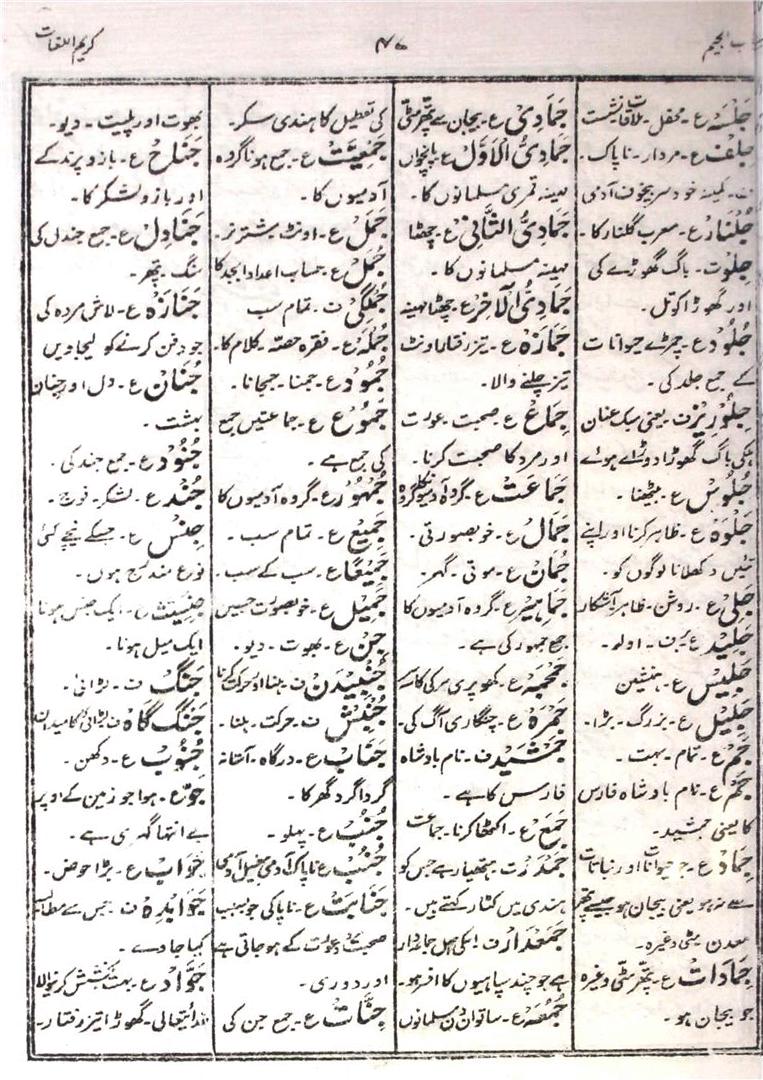 باب الجیم
۴۷
کریم اللغات
جَلْسَہ ع۔ محفل۔ ملاقات نشست
جلف ع۔ مردار۔ ناپاک۔
ف۔ کمینہ خود سر بیخوف آدمی
جُلْنَار ع۔ معرب گلنار کا۔
جِلَوت۔ باگ گھوڑے کی
اور گھوڑا کوتل۔
جُلُود ع۔ چمڑے حیوانات
کے جمع جلد کی۔
جِلَوْرِیْز ف یعنی سبک عنان
ہلکی باگ گھوڑا دوڑاے ہوئے
جُلُوْس ع۔ بیٹھنا۔
جَلْوَہ ع۔ ظاہر کرنا اور اپنے
تئیں دکھلانا لوگوں کو۔
جَلِی ع۔ روشن۔ ظاہر آشکار
جَلِیْد ع۔ برف۔ اولہ۔
جَلِیْس ع۔ ہمنشین
جَلِیْل ع۔ بزرگ۔ بڑا۔
جَم ع۔ تمام۔ بہت۔
جَم ع۔ نام بادشاہ فارس
کا یعنی جمشید۔
جَمَاد ع۔ جو حیوانات اور نباتات
سے نہ ہو یعنی بیجان ہو جیسے پتھر
معدن مٹی وغیرہ۔
جَمَادَات ع۔ پتھر مٹی وغیرہ
جو بیجان ہو۔
جَمَادِی ع۔ بیجان سے پتھر مٹی
جَمَادِیُ الْاَوَّل ع۔ پانچواں
مہینہ قمری مسلمانوں کا۔
جَمَادِیُ الثَّانِی ع۔ چھٹا
مہینہ مسلمانوں کا۔
جَمَادِیُ الْآخِر ع۔ چھٹا مہینہ
جَمَّازَہ ع۔ تیز رفتار اونٹ
تیز چلنے والا۔
جِمَاع ع۔ صحبت عورت
اور مرد کا صحبت کرنا۔
جَمَاعَت ع۔ گروہ آدمیونکا گروہ
جَمَال ع۔ خوبصورتی۔
جُمَان ع۔ موتی۔ گہر۔
جَمَاہِیْر ع۔ گروہ آدمیوں کا
جمع جمہور کی ہے۔
جُمْجُمَہ ع۔ کھوپری سر کی کاسہ سر
جَمْرَہ ع۔ چنگاری آگ کی۔
جَمْشَیْد ف۔ نام بادشاہ
فارس کا ہے۔
جَمْع ع۔ اکٹھا کرنا۔ جماعت
جَمْدَر ت۔ ہتھیار ہے جس کو
ہندی میں کٹار کہتے ہیں۔
جَمْعَدَار ف۔ اسکی اصل جامہ دار
ہے جو چند سپاہیوں کا افسر ہو۔
جُمُعَہ ع۔ ساتواں دن مسلمانوں
کی تعطیل کا ہندی سکر۔
جَمْعِیَّت ع۔ جمع ہونا گروہ
آدمیوں کا۔
جَمَل ع۔ اونٹ۔ شتر نر۔
جُمَّل ع۔ حساب اعداد ابجد کا
جُمْلَگِی ف۔ تمام سب
جُمْلَہ ع۔ فقرہ حصّہ۔ کلام کا۔
جُمُوْد ع۔ جمنا۔ جمجانا۔
جُمُوْع ع۔ جماعتیں جمع
کی جمع ہے۔
جُمْہُوْر ع۔ گروہ آدمیوں کا
جَمِیْع ع۔ تمام سب۔
جَمِیْعًا ع۔ سب کے سب۔
جَمِیْل ع۔ خوبصورت حسین
جِن ع۔ بھوت۔ دیو۔
جُنْبِیْدَن ف۔ ہلنا اور حرکت کرنا
جُنْبِش ف۔ حرکت۔ ہلنا۔
جَنَاب ع۔ درگاہ۔ آستانہ
گردا گرد گھر کا۔
جَنْب ع۔ پہلو۔
جُنُب ع۔ ناپاک آدمی بیغسل آدمی
جَنَابَت ع۔ ناپاکی جو بسبب
صحبت عورت کے ہو جاتی ہے
اور دوری۔
جِنَّات ع۔ جمع جن کی
بھوت اور پلیت۔ دیو۔
جَنَاح ع۔ بازو پرند کے
اور بازو لشکر کا۔
جَنَادِل ع۔ جمع جندل کی
سنگ۔ پتھر۔
جَنَازَہ ع۔ لاش مردہ کی
جو دفن کرنے کو لیجاویں
جَنَان ع۔ دل اور جِنان
بہشت۔
جُنُوْد ع۔ جمع جند کی۔
جُنْد ع۔ لشکر۔ فوج۔
جِنْس ع۔ جسکے نیچے کئی
نوع مندرج ہوں۔
جِنْسِیَّت ع۔ ایک جنس ہونا
ایک میل ہونا۔
جَنْگ ف۔ لڑائی۔
جَنْگ گَاہ ف لڑائی کا میدان
جُنُوْب ع۔ دکھن۔
جَو ع۔ ہوا جو زمین کے اوپر
بے انتہا گہری ہے۔
جَوَاب ع۔ بڑا حوض۔
جَوَابْدِہ ف۔ جس سے مطالبہ
کیا جاوے۔
جَوَاد ع۔ بہت بخشش کرنیوالا
اللہ تعالی۔ گھوڑا تیز رفتار۔